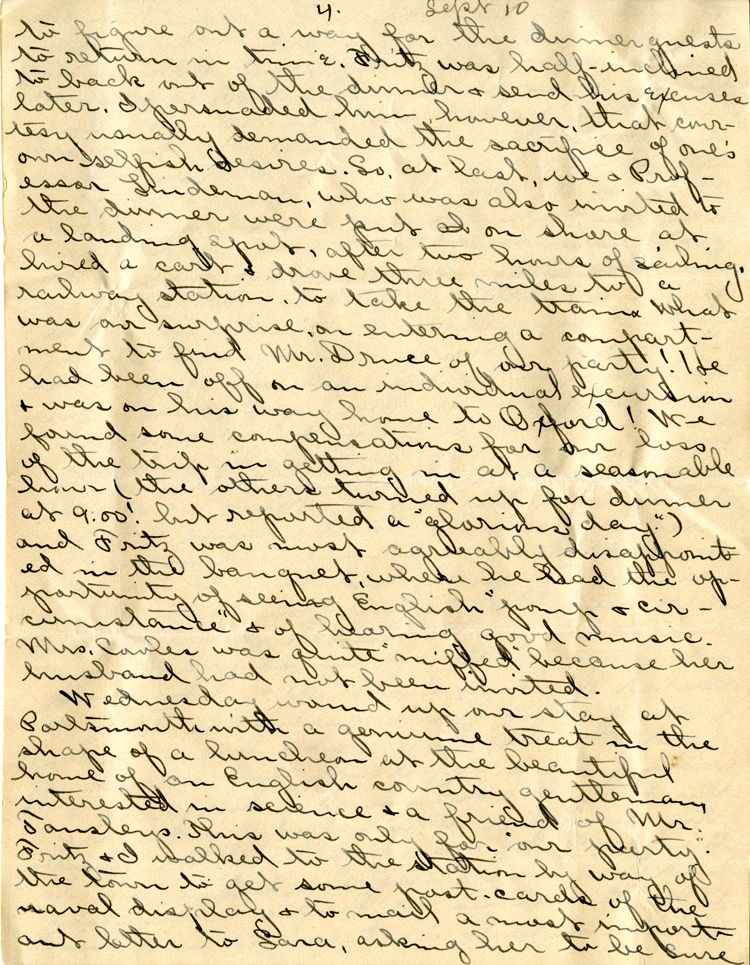 4. Sept 10
to figure out a way for the dinner guests
to return in time. Fritz was half-inclined
to back out of the dinner & send his excuses
later. I persuaded him, however, that cour-
tesy usually demanded the sacrifice of one's
own selfish desires. So, at last, we & Prof-
essor Lindeman, who was also invited to
the dinner were put on shore at
a landing spot, after two hours of sailing,
hired a cart & drove three miles to a
railway station, to take the train. What
was our surprise, on entering a compart-
ment to find Mr. Druce of our party! He
had been off on an individual excursion
& was on his way home to Oxford! We
found some compensations for our loss
of the trip in getting in at a seasonable
hour (the others turned up for dinner
at 9.00! but reported a "glorious day")
and Fritz was most agreeably disappoint-
ed in the banquet, where he had the op-
portunity of seeing English "pomp & cir-
cumstance" & of hearing good music.
Mrs. Cowles was quite "miffed" because her
husband had not been invited.
Wednesday wound up our stay at
Portsmouth with a genuine treat in the
shape of a luncheon at the beautiful
home of an English country gentleman,
interested in science & a friend of Mr.
Tansley's. This was only for "our party".
Fritz & I walked to the station by way of
the town to get some post-cards of the
naval display & to mail a most import-
ant letter to Sara, asking her to be sure